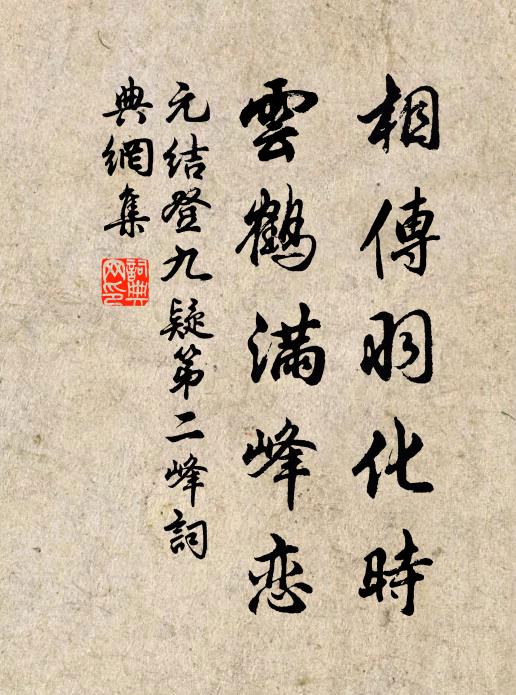 相傳羽化時
雲鶴滿峰恋
元結登九疑第二峰詞
典網集
詞典
网印